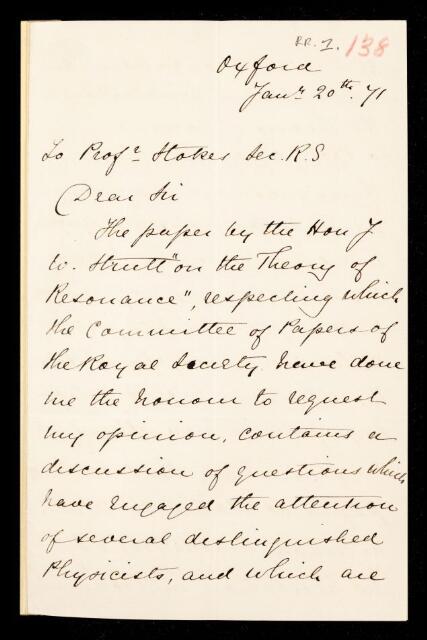 RR. 7. 138
Oxford
Jany 20th. 71
To Profr Stokes Sec. R.S
Dear Sir
The paper by the Hon J
W. Strutt "on the Theory of
Resonance", respecting which
the Committee of Papers of
the Royal Society have done
me the honour to request
my opinion, contains a
discussion of questions which
have engaged the attention
of several distinguished
Physicists, and which are